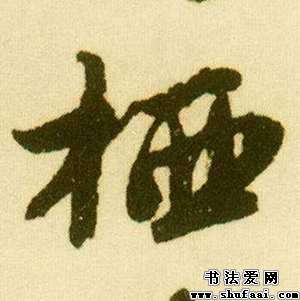 栖
书法爱网
www.shufaai.com